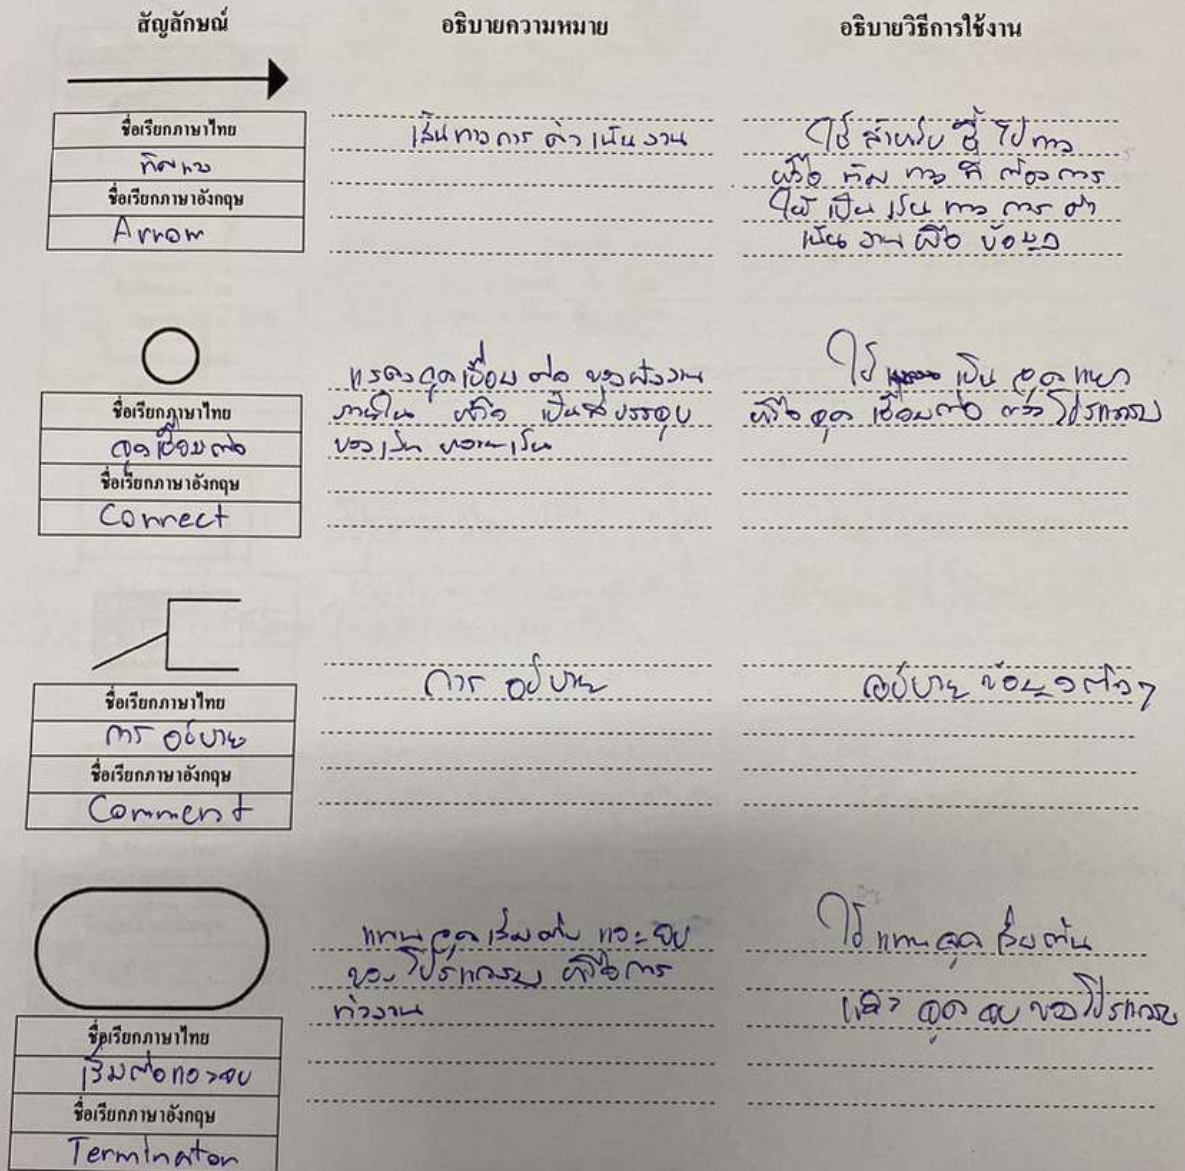 สัญลักษณ์ อธิบายความหมาย อธิบายวิธีการใช้งาน
ชื่อเรียกภาษาไทย
ทิศทาง
ชื่อเรียกภาษาอังกฤษ
Arrow
เส้นทางการดำเนินงาน
ใช้สำหรับชี้ไปทาง
หรือทิศทางที่ต้องการ
ให้เป็นเส้นทางการดำ
เนินงานหรือข้อมูล
ชื่อเรียกภาษาไทย
จุดเชื่อมต่อ
ชื่อเรียกภาษาอังกฤษ
Connect
แสดงจุดเชื่อมต่อของผังงาน
ภายใน หรือ เป็นที่บรรจบ
ของเส้น หลายเส้น
ใช้ เป็น จุด แยก
หรือจุด เชื่อมต่อ ตัวโปรแกรม
ชื่อเรียกภาษาไทย
การ อธิบาย
ชื่อเรียกภาษาอังกฤษ
Comment
การ อธิบาย
อธิบาย ข้อมูลต่างๆ
ชื่อเรียกภาษาไทย
ชื่อเรียกภาษาอังกฤษ
Terminator
แทนจุดเริ่มต้น และจบ
ของโปรแกรม หรือการ
ทำงาน
ใช้แทนจุด เริ่มต้น
และ จุด จบ ของโปรแกรม